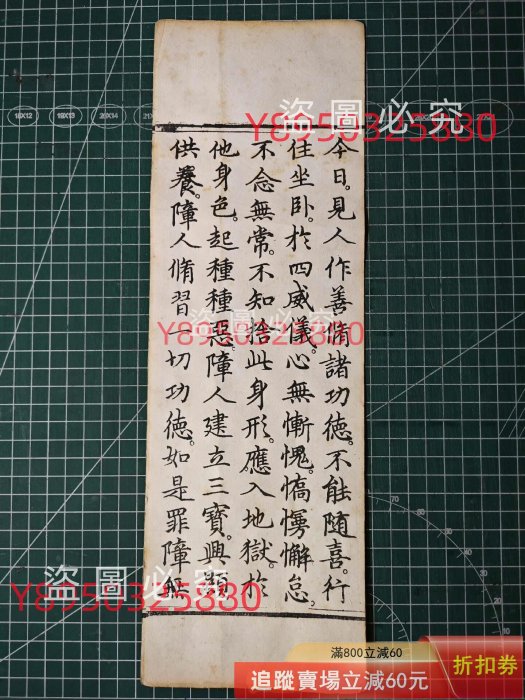 今日。見人作善脩諸功徳。不能隨喜。行
住坐卧。於四威儀。心無慚愧。憍慢懈怠。
不念無常。不知捨此身形。應入地獄。於
他身色。起種種惡。障人建立三寶。興顯
供養。障人脩習一切功徳。如是罪障無
盜圖必究
Y8950325880
盜圖必究
Y8950325880
盜圖必究
Y8950325880
滿800立減60
追蹤賣場立減60元
折扣券